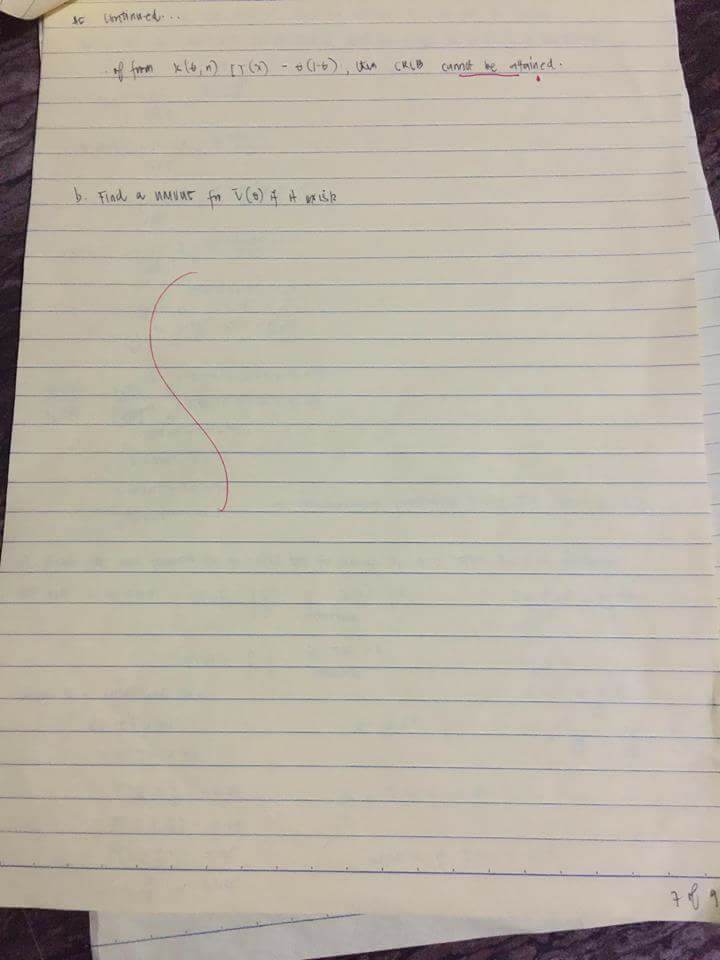 continued...
of form K(θ,n) [T(x) - θ(1-θ), then CRLB cannot be attained.
b. Find a UMVUE for τ(θ) if it exists
7 of 9